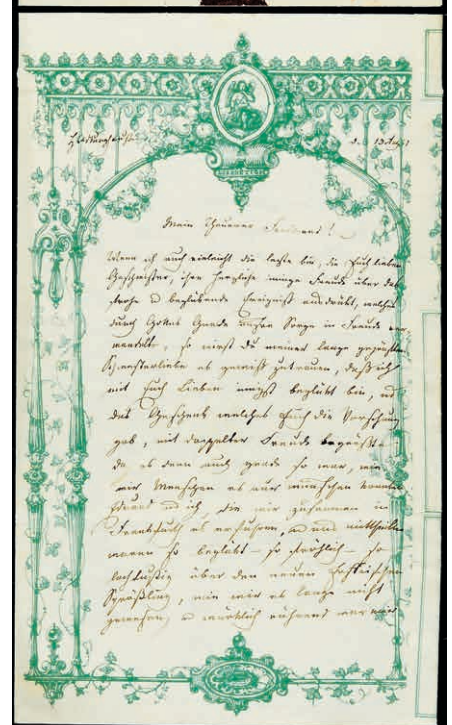 Mein Theurer Freund!
Wenn ich auch vielleicht die letzte bin, die Euch lieben
Geschwister, ihre herzliche innige Freude über das
frohe u beglückende Ereigniß ausdrückt, welches
durch Gottes Gnade unsre Sorge in Freude ver
wandelte, so wirst Du meiner lange geprüften
Schwesterliebe es gewiß zutrauen, daß ich
mit Euch Lieben innigst beglückt bin, und
das Geschenk welches Euch die Vorsehung
gab, mit doppelter Freude begrüßte
da es denn auch grade so war, wie
wir Menschen es nur wünschen konnten
Eduard und ich die wir zusammen in
Frankfurth es erfuhren, u uns mittheilten
waren so beglückt – so fröhlich – so
lachlustig über den neuen
Sprößling, wie wir es lange nicht
gewesen, u würklich rührend war mir